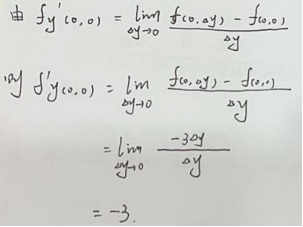 由 fy'(0,0) = lim Δy→0 f(0,Δy) - f(0,0) / Δy
则 f'y(0,0) = lim Δy→0 f(0,Δy) - f(0,0) / Δy
= lim Δy→0 -3Δy / Δy
= -3.